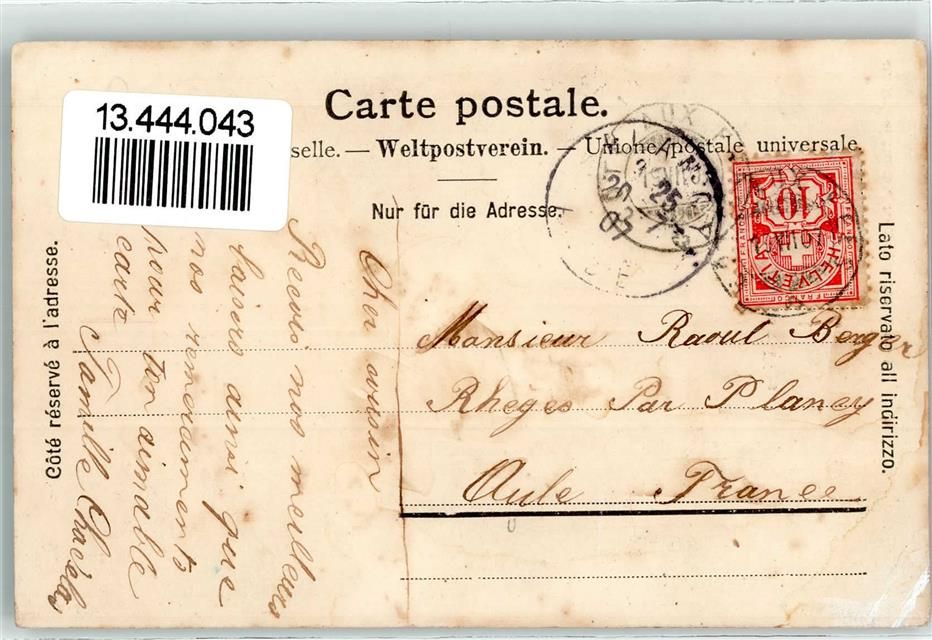 13.444.043
Carte postale.
selle. — Weltpostverein. — Unione postale universale.
Nur für die Adresse.
Côté réservé à l'adresse.
Lato riservato all indirizzo.
10
HELVETIA
FRANCO
PLANCY
20
07
AUBE
25
Monsieur Raoul Berger
Rhèges Par Plancy
Aube France
Cher cousin
Recois nos meilleurs
baisers ainsi que
nos remerciements
pour ton aimable
carte
Famille